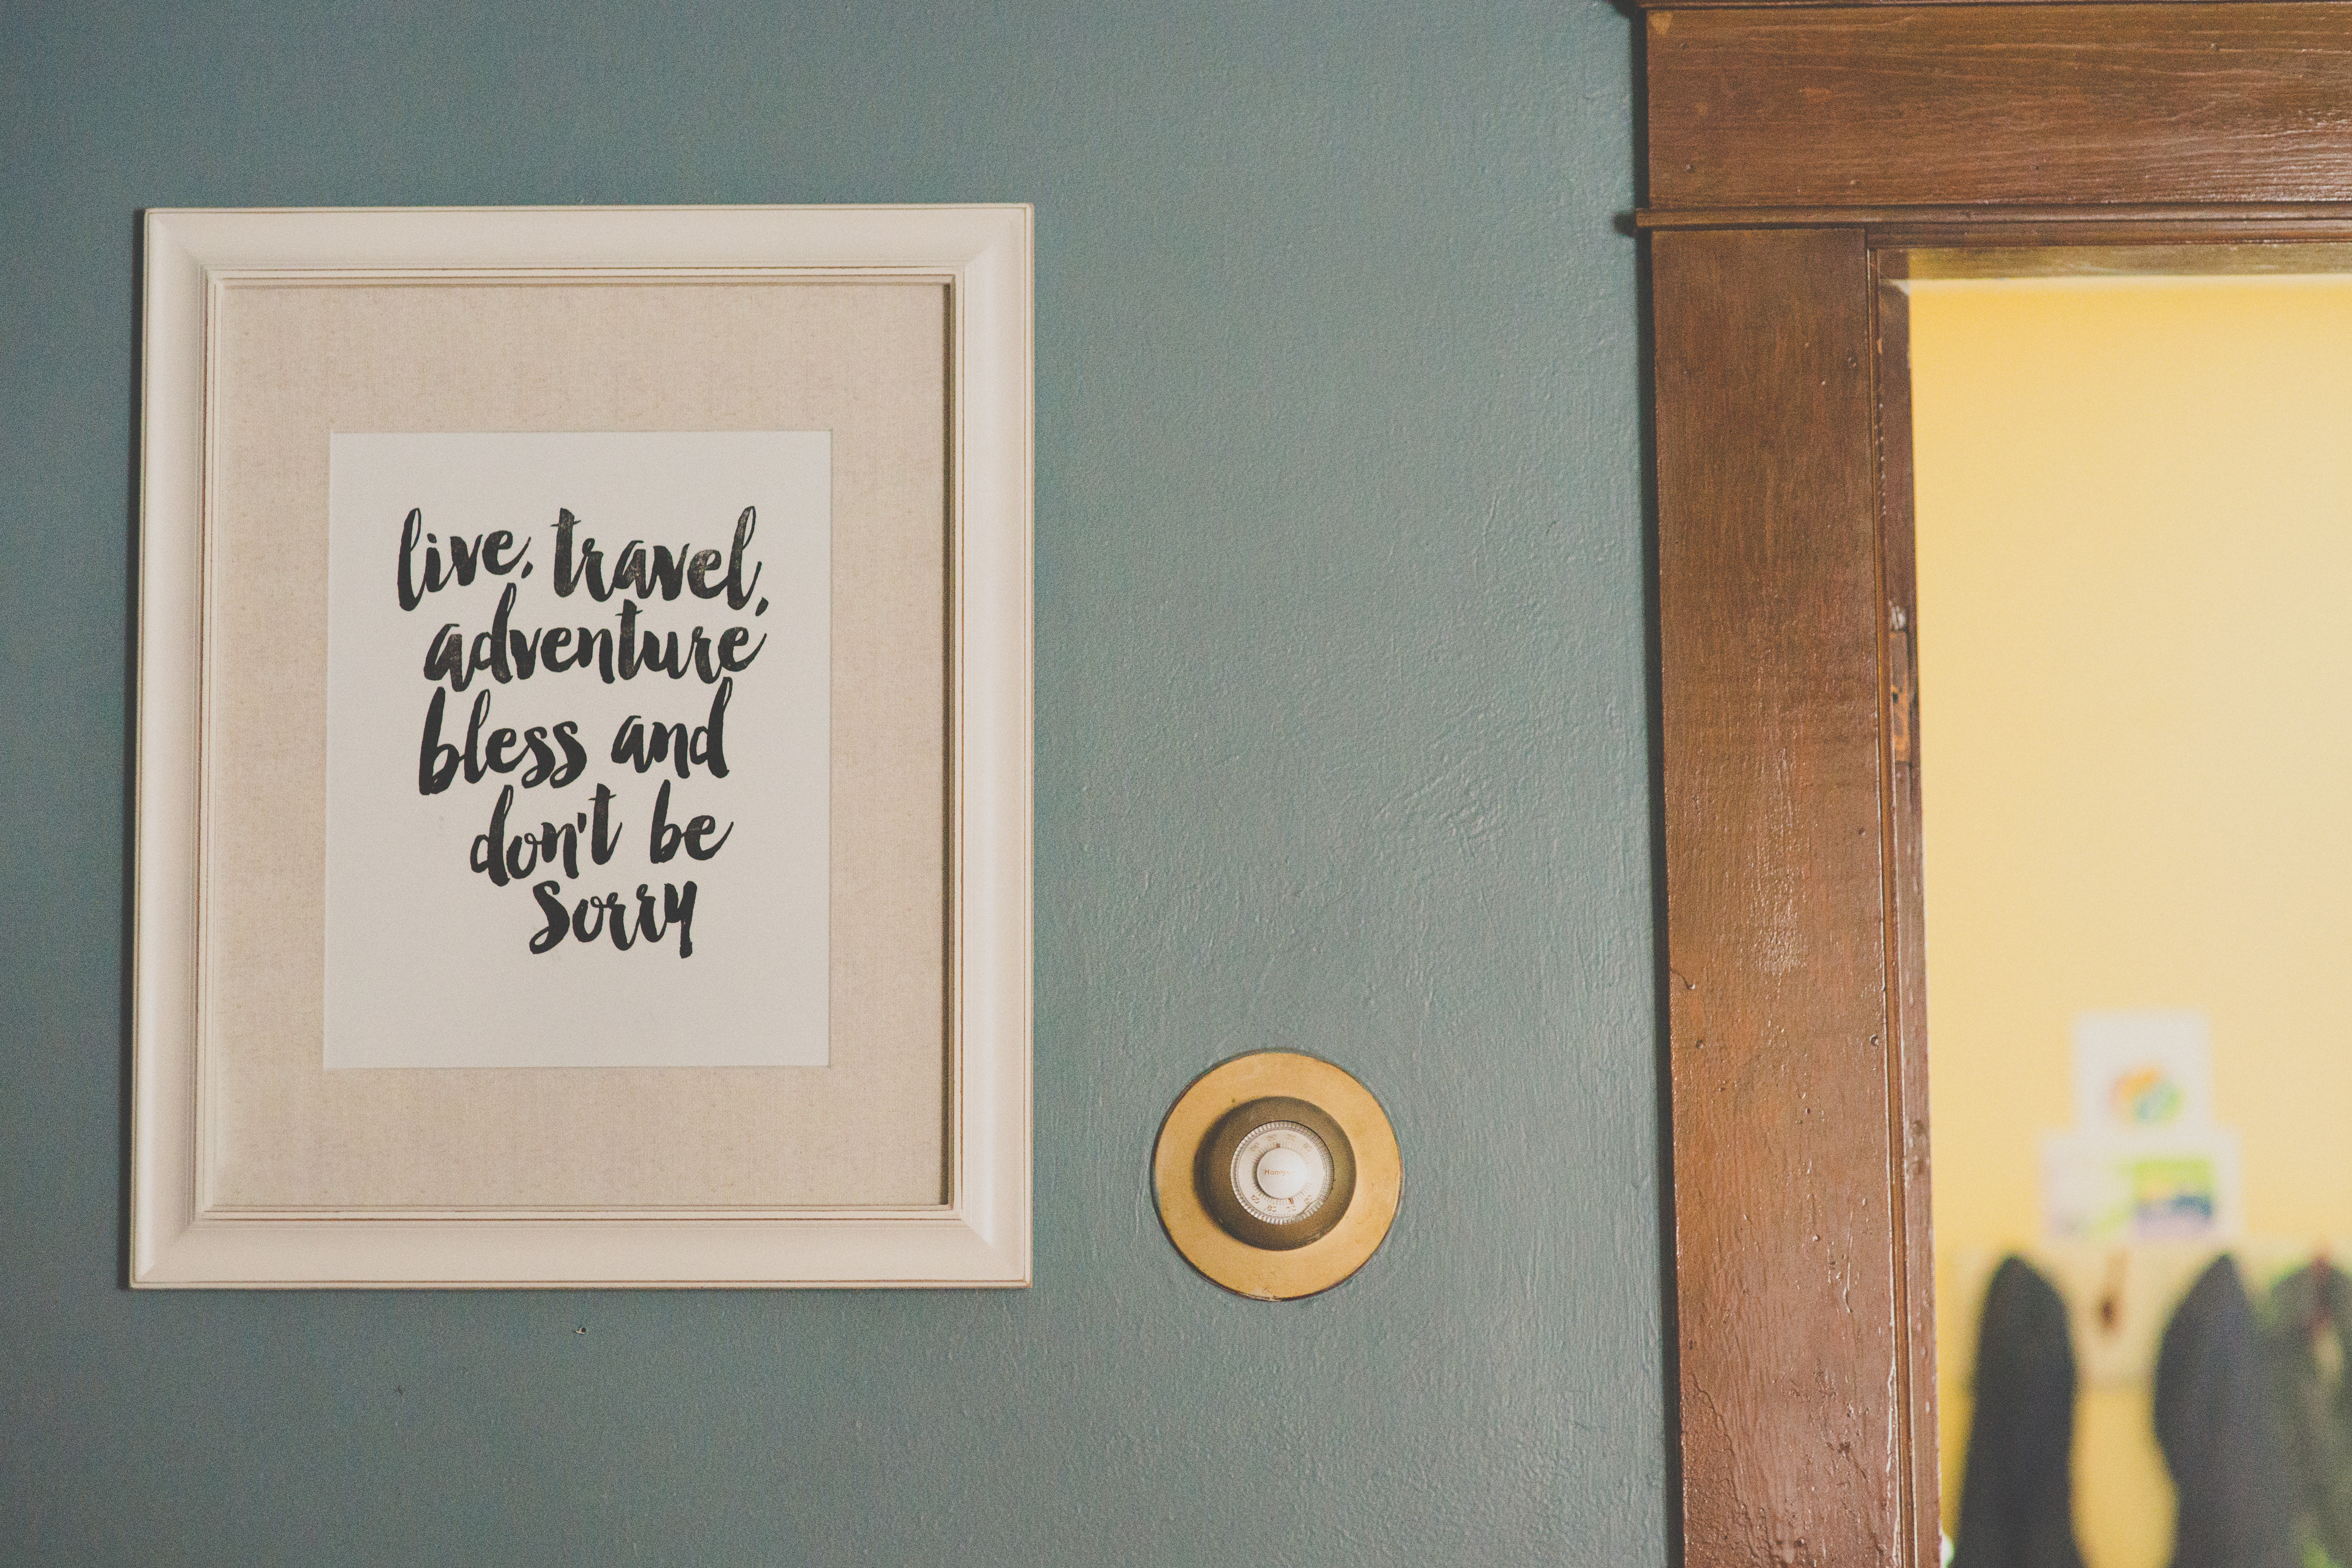 live, travel,
adventure
bless and
don't be
sorry